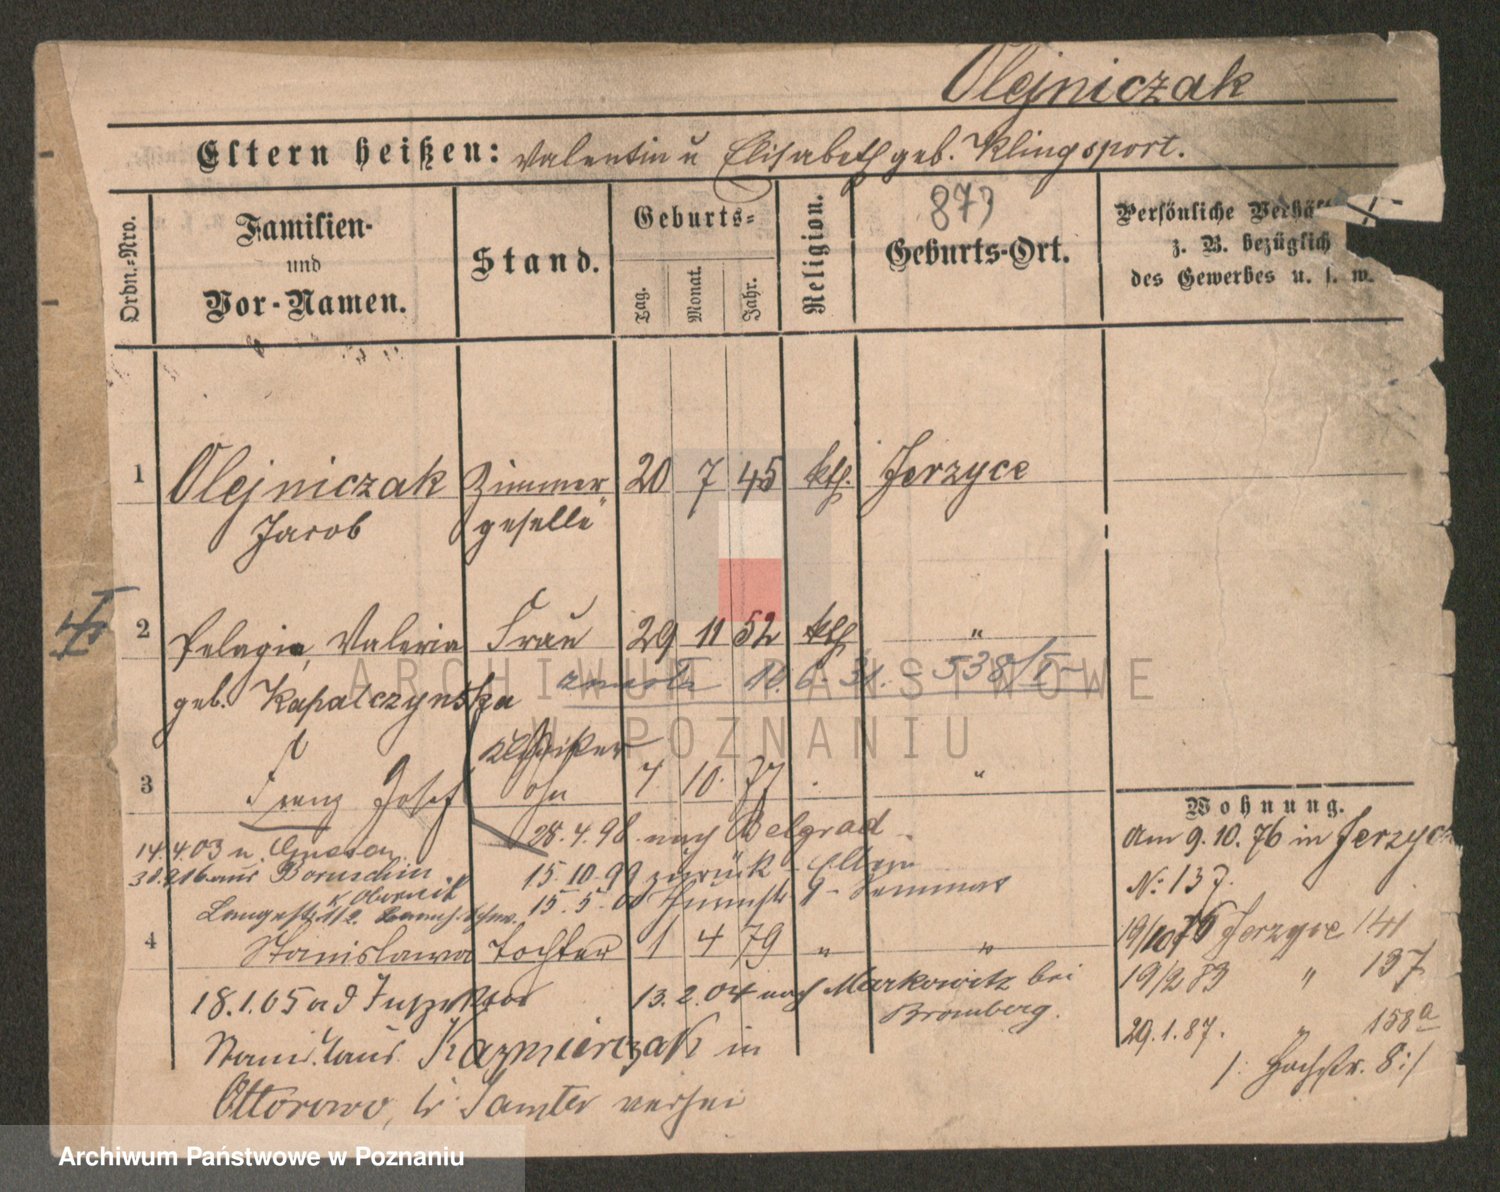 Olejniczak
Eltern heißen: Valentin u Elisabeth geb. Klingsport.
Ordn.-Nro.
Familien- und Vor-Namen.
Stand.
Geburts-
Tag.
Monat.
Jahr.
Religion.
873
Geburts-Ort.
Persönliche Verhä
z. B. bezüglich
des Gewerbes u. s. w.
1 Olejniczak Zimmer 20 7 45 kth. Jerzyce
Jacob geselle
2 Pelagia, Valeria Frau 29 11 52 kth "
geb. Kapalczynska 10. 6. 31. - 538/
ARCHIWUM PAŃSTWOWE
W POZNANIU
3 Franz Josef 7. 10. 77 "
28.4.98. nach Belgrad
14.4.03 n. Gnesen
aus Boruschin
15.10.99 zurück - Eltern
15.5.
4 Stanislawa Tochter 1 4 79 " "
18.1.05 a d
13.2.04 nach Markowitz bei
Bromberg.
Stanislaus Kazmierczak in
Ottorowo, Kr. Samter
Wohnung.
Am 9.10.76 in Jerzyce
No: 137.
19/10 76 Jerzyce 141
19/2 83 " 137
29.1.87. " 158a
/: Hochstr. 8:/
Archiwum Państwowe w Poznaniu